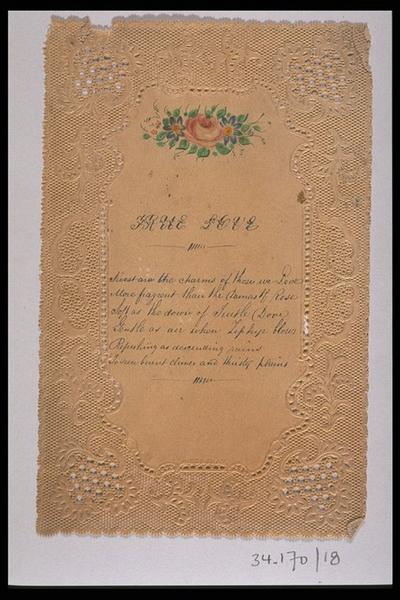 TRUE LOVE
Sweet are the charms of those we Love
More fragrent than the Damask Rose
Soft as the down of Turtle Dove
Gentle as air when Zephyr blows
Refreshing as descending rains
To sun burnt climes and thirsty plains
34.170/18